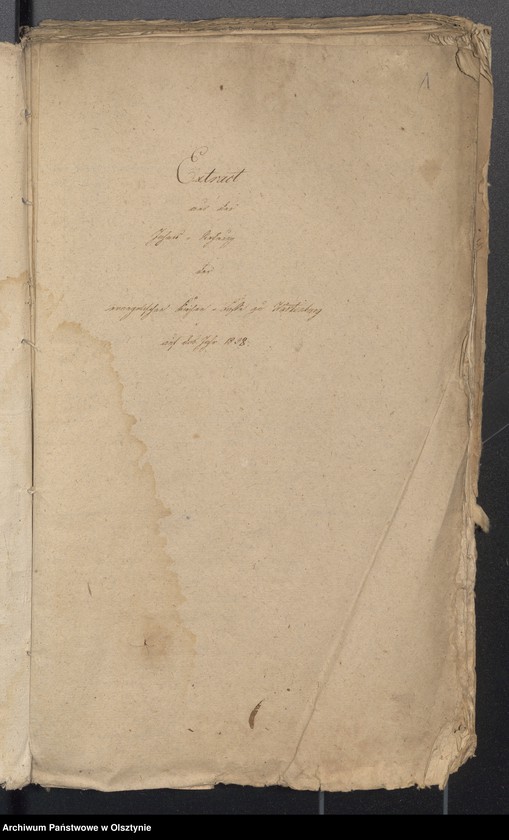 1
Extract
aus der
Jahres-Rechnung
der
evangelischen Kirchen-Kasse zu Wartenburg
auf das Jahr 1838.
Archiwum Państwowe w Olsztynie